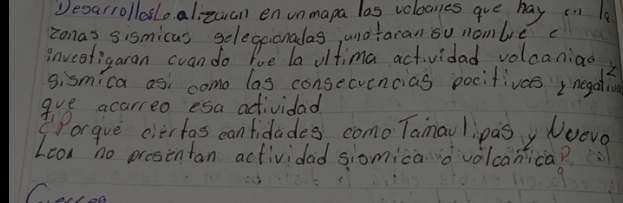 Desarrollo Localizaran en un mapa los volcanes que hay en la
zonas sismicas seleccionadas, anotaran su nombre e
investigaran cuando fue la ultima actividad volcanica y
sismica asi como las consecuencias pocitivas y negativa
que acarreo esa actividad
¿Porque ciertas cantidades como Tamaulipas y Nuevo
Leon no presentan actividad sismica o volcanica?
Cierre